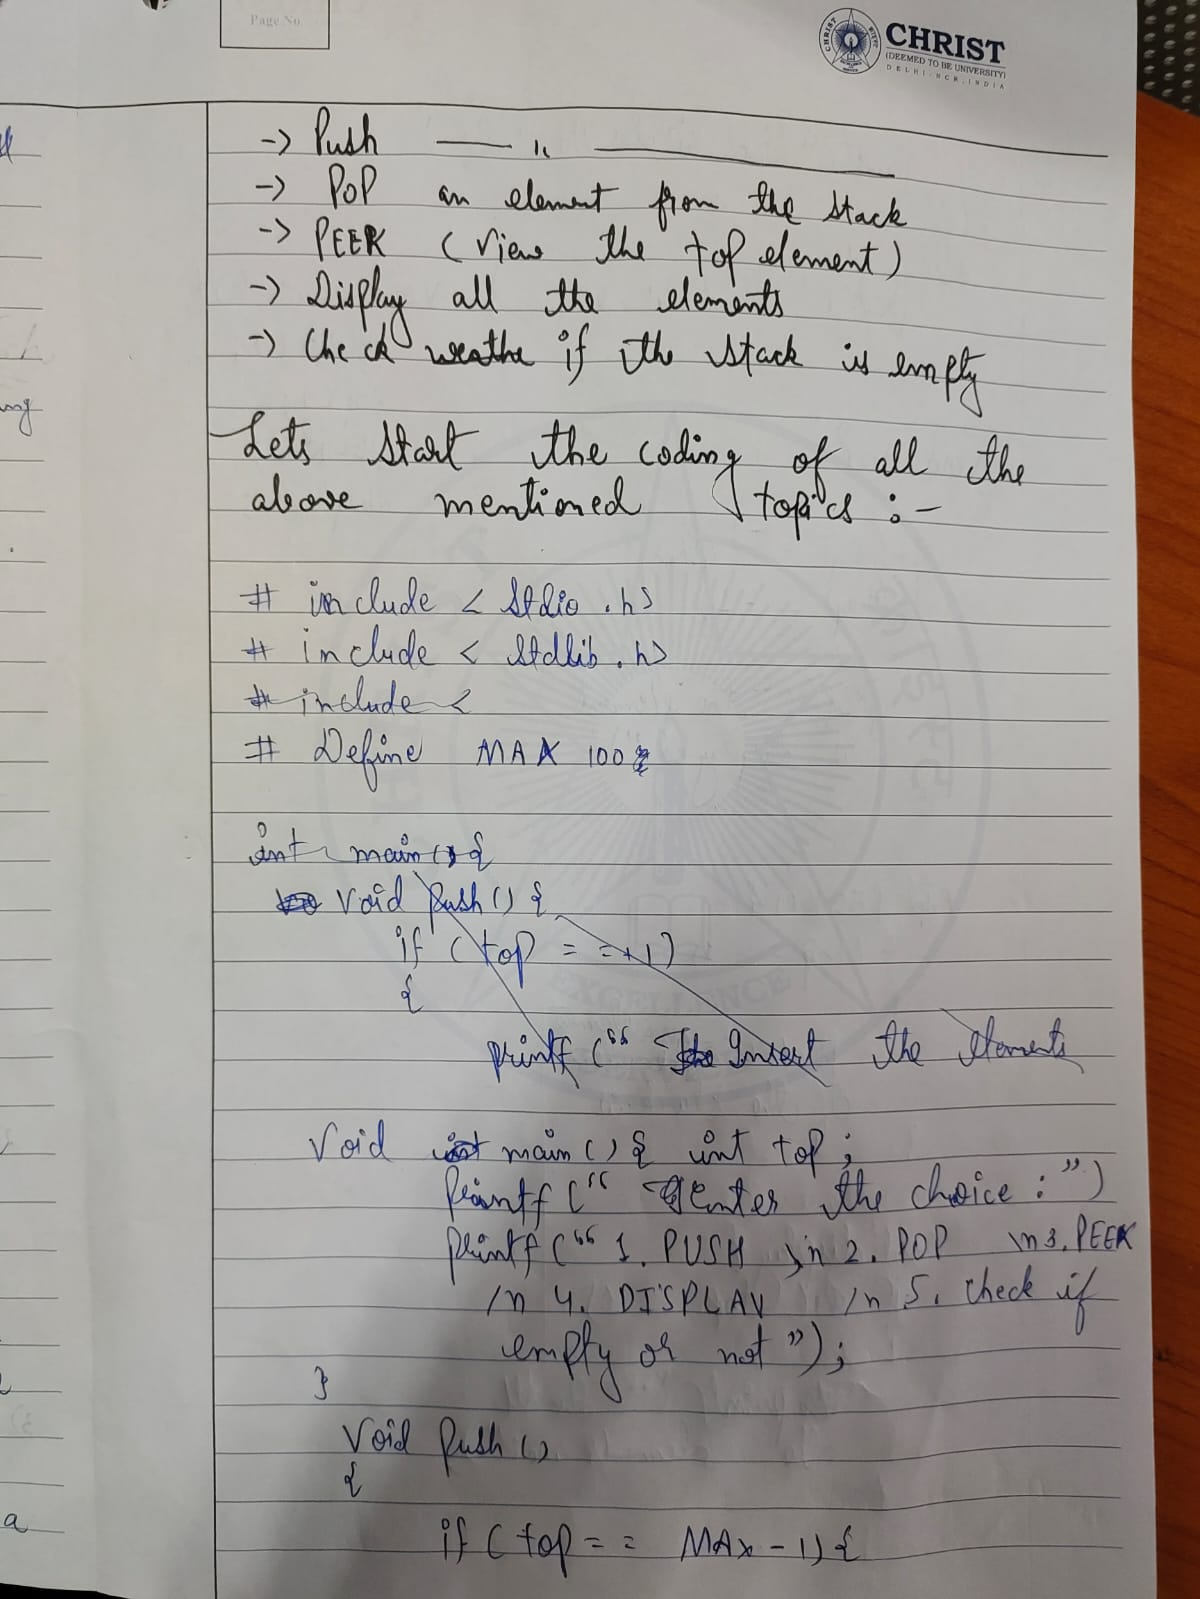 Page No
CHRIST
(DEEMED TO BE UNIVERSITY)
DELHI-NCR, INDIA
-> Push —— " ——
-> POP an element from the stack
-> PEEK (View the top element)
-> Display all the elements
-> Check weathe if the stack is empty
Lets start the coding of all the
above mentioned topics :-
# include < Stdio .h>
# include < Stdlib .h>
# include <
# Define MAX 100
int main() {
Void Push () {
if ( top = = +1)
{
printf (" Insert the elements
Void main () { int top ;
printf (" Enter the choice : ")
printf (" 1. PUSH \n 2. POP \n3. PEEK
/n 4. DISPLAY /n 5. check if
empty or not ");
}
Void Push ()
{
if ( top = = MAX - 1) {
EXCELLENCE
ng
a